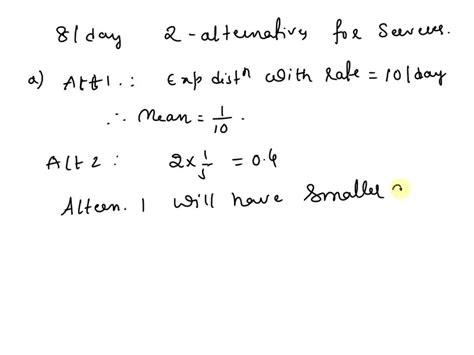 8/day 2-alternatives for Servers.
a) Alt 1 : Exp distⁿ with rate = 10/day
∴ Mean = 1/10 .
Alt 2 : 2 x 1/5 = 0.4
Altern. 1 will have smaller